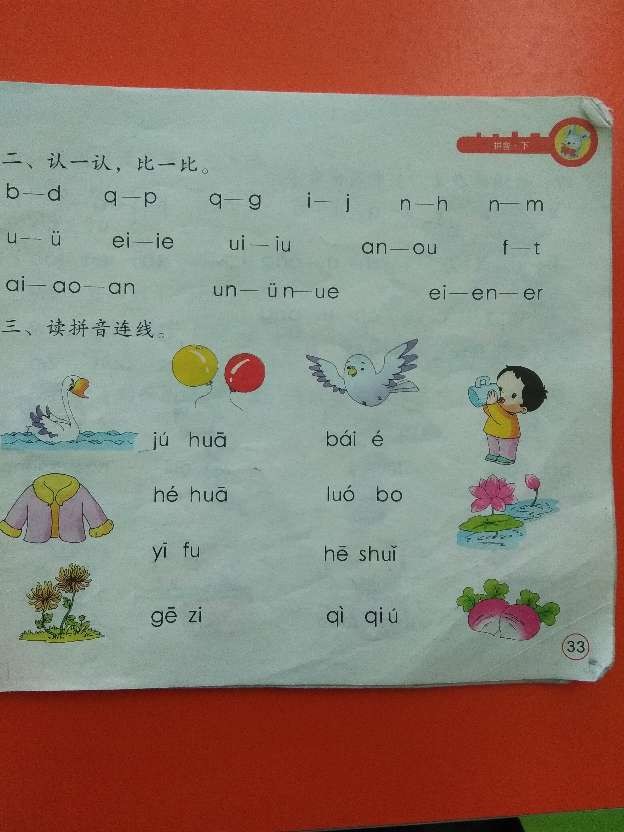 拼音·下
二、认一认，比一比。
b—d q—p q—g i—j n—h n—m
u—ü ei—ie ui—iu an—ou f—t
ai—ao—an un—ün—ue ei—en—er
三、读拼音连线。
jú huā bái é
hé huā luó bo
yī fu hē shuǐ
gē zi qì qiú
33